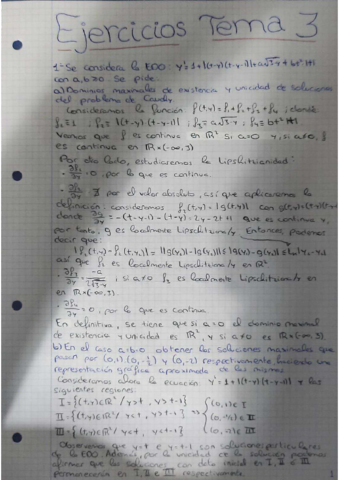 Ejercicios Tema 3
1-Se considera la EDO: y'=1+|(t-y)(t-y-1)|+a√3-y + bt²
con a,b≥0. Se pide:
a) Dominios maximales de existencia y unicidad de soluciones
del problema de Cauchy.
Consideramos la función f(t,y)=f₁+f₂+f₃+f₄; donde
f₁≡1 ; f₂≡|(t-y)(t-y-1)| ; f₃≡a√3-y ; f₄≡bt²
Vemos que f es continua en ℝ² si a=0 y, si a≠0, f
es continua en ℝ×(-∞,3)
Por otro lado, estudiaremos la Lipschitzianidad:
· ∂f₁/∂y = 0, por lo que es continua.
· ∂f₂/∂y ∄ por el valor absoluto, así que aplicaremos la
definición: consideramos f₂(t,y)=|g(t,y)| con
donde ∂g/∂y = -(t-y-1)-(t-y)= 2y-2t+1 que es continua y,
por tanto, g es localmente Lipschitziana/y. Entonces podemos
decir que:
|f₂(t,y₁)-f₂(t,y₂)|=||g(y₁)|-|g(y₂)||≤|g(y₁)-g(y₂)|≤L|y₁-y₂|
así que f₂ es localmente Lipschitziana/y en ℝ²
· ∂f₃/∂y = -a/2√3-y ; si a≠0 f₃ es localmente Lipschitziana/y
en ℝ×(-∞,3)
· ∂f₄/∂y = 0, por lo que es continua.
En definitiva, se tiene que si a=0 el dominio maximal
de existencia y unicidad es ℝ², y si a≠0 es ℝ×(-∞,3)
b) En el caso a=b=0 obtener las soluciones maximales que
pasan por (0,1), (0,-½) y (0,-2) respectivamente haciendo una
representación gráfica aproximada de las mismas.
Consideramos ahora la ecuación y'=1+|(t-y)(t-y-1)| y las
siguientes regiones:
I={(t,y)∈ℝ² / y>t , y>t-1} (0,1)∈I
II={(t,y)∈ℝ² / y<t , y>t-1} (0,-½)∈II
III={(t,y)∈ℝ² / y<t , y<t-1} (0,-2)∈III
Observamos que y=t e y=t-1 son soluciones particulares
de la EDO. Además, por la unicidad de la solución podemos
afirmar que las soluciones con dato inicial en I, II e III
permanecerán en I, II e III respectivamente.
1